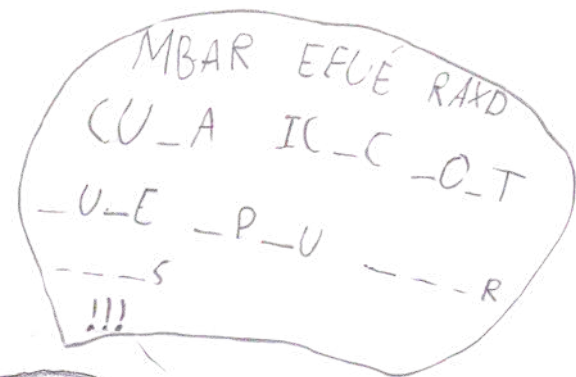 MBAR EFUÉ RAXD
CU_A IC_C _O_T
_U_E _P_U ____R
____S
!!!